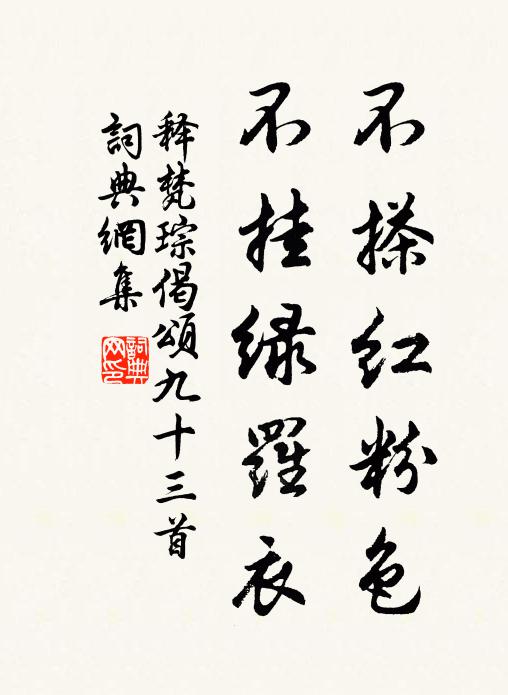 不搽红粉色
不挂绿罗衣
释梵琮偈颂九十三首
詞典網集
詞典
网印